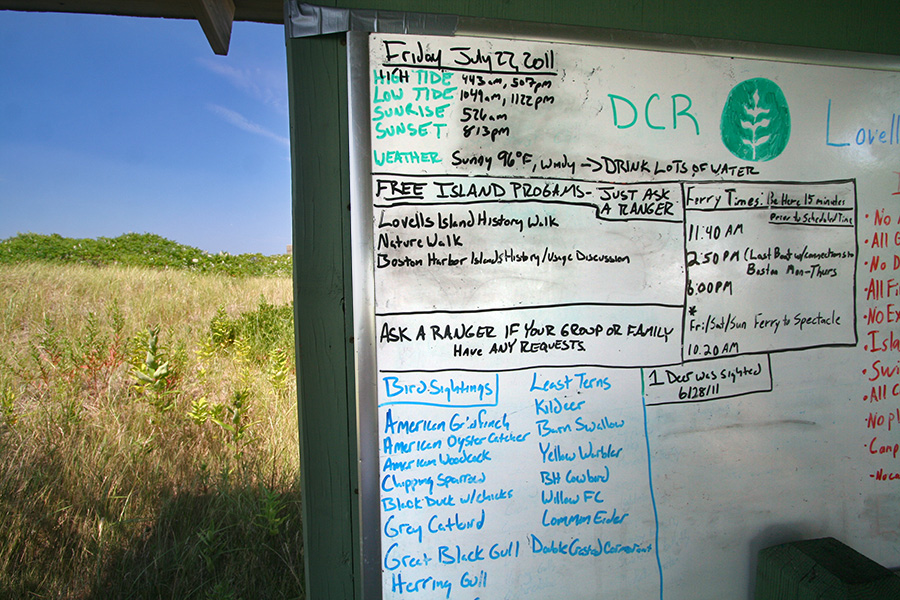 Friday July 22, 2011
HIGH TIDE 443am, 507pm
LOW TIDE 1049am, 1122pm
SUNRISE 526am
SUNSET 813pm
WEATHER Sunny 96°F, windy → DRINK LOTS OF WATER
DCR
Lovell
FREE ISLAND PROGAMS- JUST ASK
A RANGER
Lovells Island History Walk
Nature Walk
Boston Harbor Islands History/Usage Discussion
ASK A RANGER IF YOUR GROUP OR FAMILY
HAVE ANY REQUESTS
Ferry Times: Be Here 15 minutes
prior to Scheduled Time
11:40 AM
2:50 PM (Last Boat w/connections to
Boston Mon-Thurs
6:00PM
*
Fri/Sat/Sun Ferry to Spectacle
10:20 AM
1 Deer was sighted
6/28/11
Bird Sightings
American Goldfinch
American Oyster Catcher
American Woodcock
Chipping Sparrow
Black Duck w/chicks
Grey Catbird
Great Black Gull
Herring Gull
Least Terns
Kildeer
Barn Swallow
Yellow Warbler
BH Cowbird
Willow FC
Common Eider
Double Crested Cormorant
• No
• All
• No
• All Fi
• No Ex
• Isla
• Swi
• All C
• No pl
• Camp
- No ca